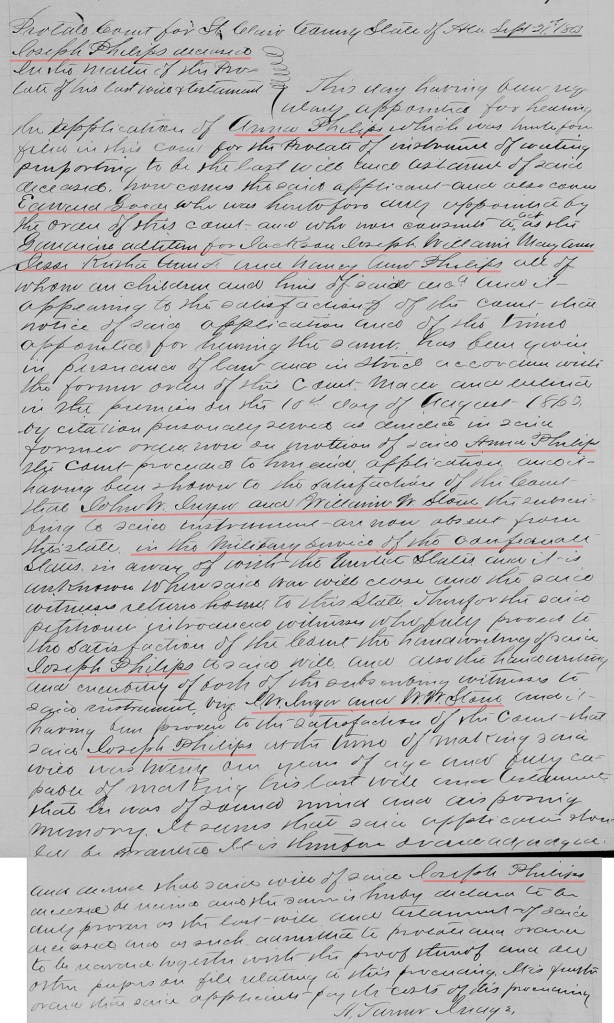 Probate Court for St. Clair County State of Ala Sept 21st 1863
Joseph Philips deceased
In the matter of the Pro-
bate of his last will & testament
This day having been reg-
ularly appointed for hearing
the application of Anna Philips which was heretofore
filed in this court for the Probate of instrument of writing
purporting to be the last will and testament of said
deceased. now comes the said applicant and also came
Edward who was heretofore duly appointed by
the order of this court and who now consents to act as the
Guardian ad litem for Jackson Joseph William Mary Ann
Jesse Ann and Nancy Ann Philips all of
whom are children and heirs of said decd and it
appearing to the satisfaction of the court that
notice of said application and of the time
appointed for hearing the same has been given
in persuance of law and in strict accordance with
the former order of this Court made and entered
in the premises on the 10th day of August 1863.
by citation personally served as directed in said
former order now on motion of said Anna Philips
the court proceed to hear said application and it
having been shown to the satisfaction of the Court
that John W. Inzer and William W. Stone the subscri-
bing to said instrument are now absent from
this state. in the Military service of the Confederate
States. in a way of with the United States and it is
unknown when said war will close and the said
witness return home to this State. Therefor the said
petitioner introduced witnesses who fully proved to
the satisfaction of the Court the handwriting of said
Joseph Philips to said will and also the handwriting
and of both of the subscribing witness to
said instrument, viz, J W Inzer and W. W. Stone and it
having been proven to the satisfaction of the Court that
said Joseph Philips at the time of making said
will was twenty one years of age and fully ca-
pable of making his last will and testament
that he was of sound mind and disposing
memory. It seems that said application should
be granted It is therefore ordered adjudged
and decreed that said will of said Joseph Philips
deceased be and the same is hereby declared to be
duly proven as the last will and testament of said
deceased and as such admitted to probate and ordered
to be recorded together with the proof thereof and all
other papers on file relating to this proceeding. It is further
ordered that said applicant pay the costs of this proceeding
Turner Judge.